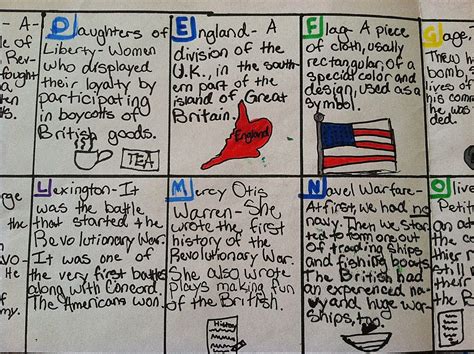 - A
le of
Rev-
fought
Daughters of
Liberty- Women
who displayed
their loyalty by
participating
in boycotts of
British goods.
TEA
England- A
division of the
U.K., in the south-
ern part of the
island of Great
Britain.
England
Flag- A piece
of cloth, usally
rectangular, of
a special color and
design, used as a
symbol.
Gage,
Threw h
bomb, s
lives of
his com
he was
ded.
rge
e
vo-
my.
Lexington- It
was the battle
that started the
Revolutionary War.
It was one of
the very first battles
along with Concord.
The Americans won.
Mercy Otis
Warren- She
wrote the first
history of the
Revolutionary War.
She also wrote
plays making fun
of the British.
History
Navel Warfare-
At first, we had no
navy. Then we star
ted to form one out
of trading ships
and fishing boats.
The British had
an experienced na-
vy and huge war-
ships, too.
Oliv
Petit
an ad
the
their r
still
of the